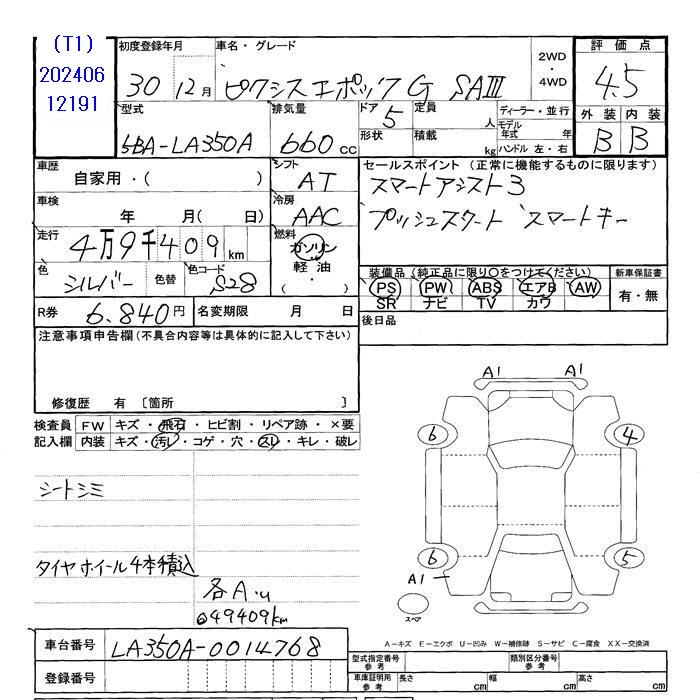 (T1)
202406
12191
初度登録年月
30 12月
車名・グレード
ピクシスエポック G SAIII
2WD
・
4WD
評価点
4.5
型式
5BA-LA350A
排気量
660 cc
ドア 5
定員 人
形状
積載 kg
ディーラー・並行
モデル年式 年
ハンドル 左・右
外装 内装
B B
車歴
自家用・( )
シフト
AT
セールスポイント (正常に機能するものに限ります)
スマートアシスト3
プッシュスタート スマートキー
車検
年 月( 日)
冷房
AAC
走行
4万9千409km
燃料
ガソリン
軽油
( ・ )
色
シルバー
色替
色コード
S28
装備品 (純正品に限り○をつけてください)
PS PW ABS エアB AW
SR ナビ TV カワ
新車保証書
有・無
R券
6.840円
名変期限 月 日
後日品
注意事項申告欄 (不具合内容等は具体的に記入して下さい)
修復歴 有 〔箇所 〕
検査員
記入欄
FW キズ・飛石・ヒビ割・リペア跡・×要
内装 キズ・汚レ・コゲ・穴・スレ・キレ・破レ
シートシミ
タイヤホイール4本積込
各A.u
◎49409km
A1 A1
6 4
6 5
A1
スペア
A-キズ E-エクボ U-凹み W-補修跡 S-サビ C-腐食 XX-交換済
車台番号
LA350A-0014768
登録番号
型式指定番号
参考
類別区分番号
参考
車庫証明用
参考
長さ cm 幅 cm 高さ cm